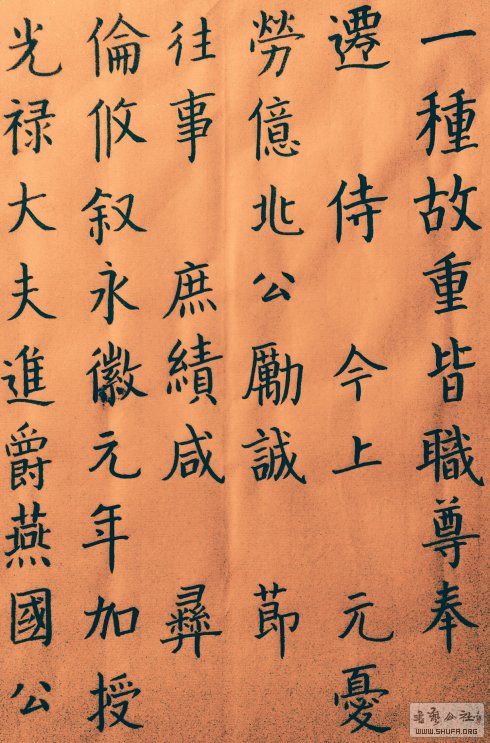 一種故重皆職尊奉
遷 侍 今上 元憂
勞億兆公勵誠 莭
往事 庶績咸 彛
倫攸叙永徽元年加授
光禄大夫進爵燕國公
書藝公社
WWW.SHUFA.ORG